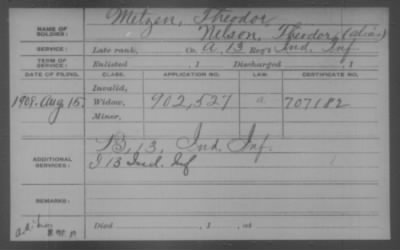 NAME OF SOLDIER: Metzen, Theodor
Nelson, Theodore (alias)
SERVICE: Late rank, Co. A, 13 Reg't Ind. Inf
TERM OF SERVICE: Enlisted , 1 Discharged , 1
DATE OF FILING. CLASS. APPLICATION NO. LAW. CERTIFICATE NO.
Invalid,
1908. Aug 15. Widow, 902,527 a 707182
Minor,
ADDITIONAL SERVICES: B, 13, Ind. Inf.
I 13 Ind. Inf
REMARKS:
Died , 1 , at